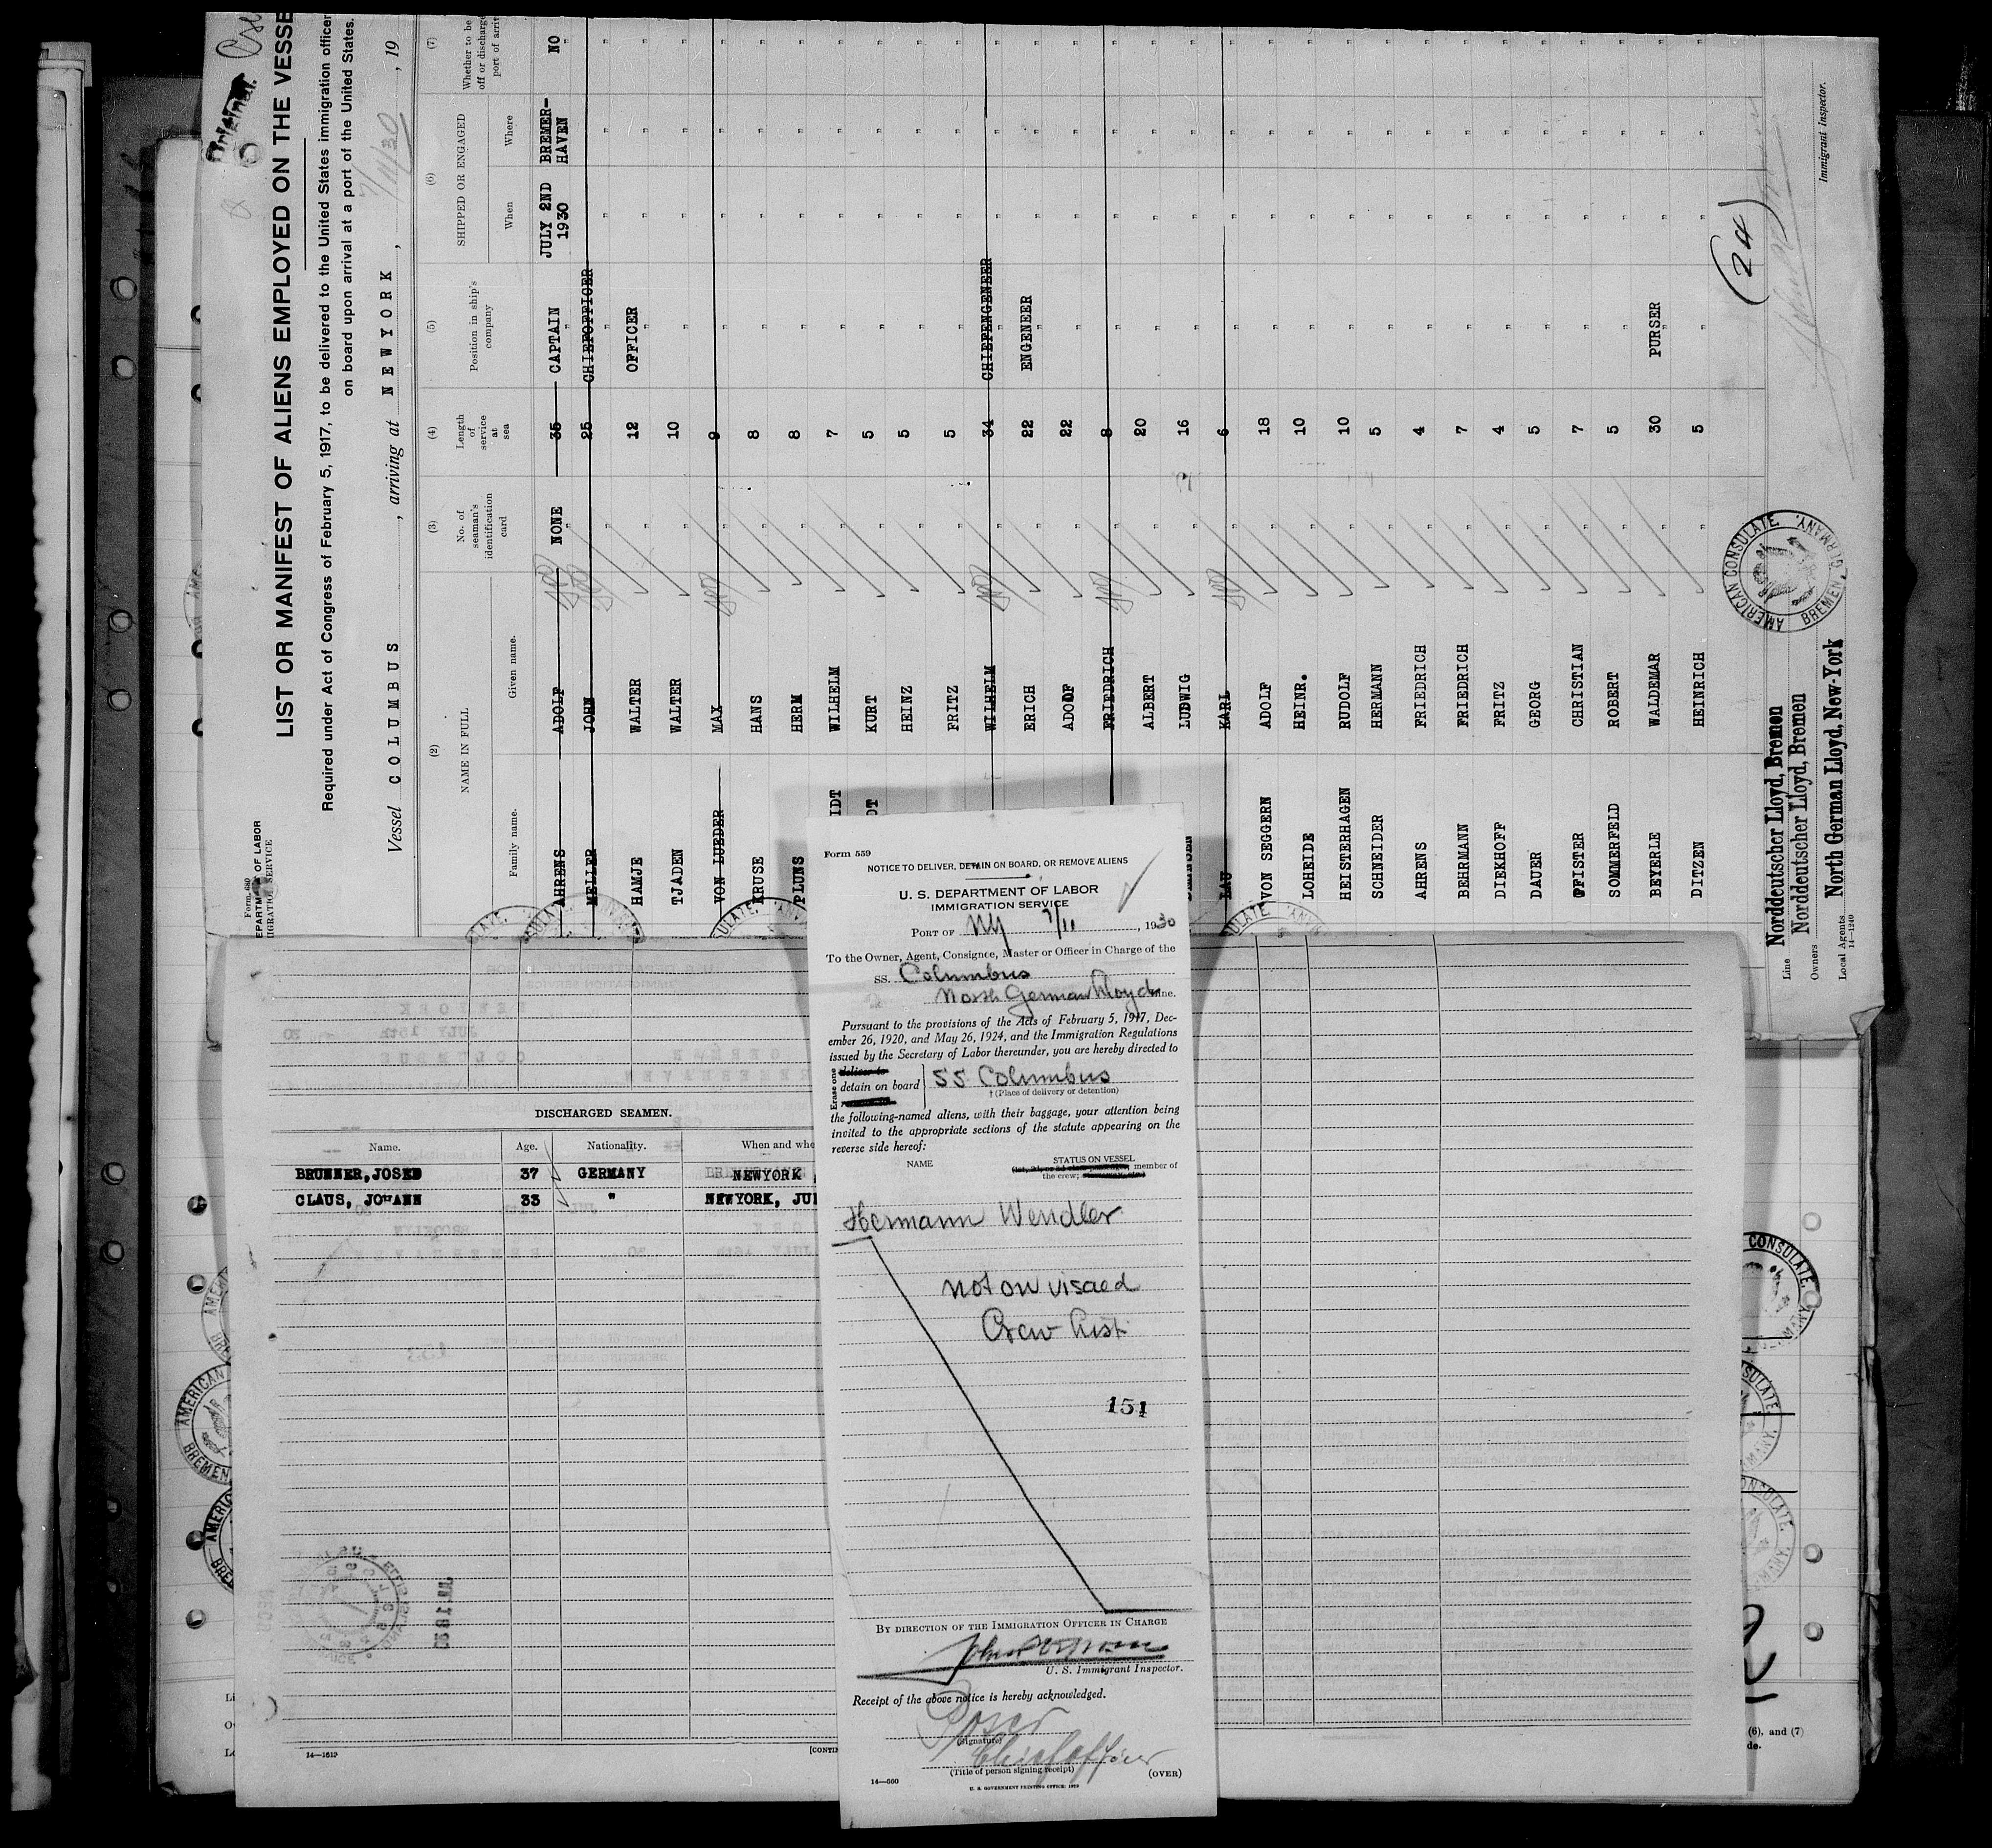 Original.
LIST OR MANIFEST OF ALIENS EMPLOYED ON THE VESSE
Required under Act of Congress of February 5, 1917, to be delivered to the United States immigration officer
on board upon arrival at a port of the United States.
Vessel COLUMBUS, arriving at NEWYORK, 7/11/30, 19
Form 680
DEPARTMENT OF LABOR
IMMIGRATION SERVICE
(2) (3) (4) (5) (6) (7)
NAME IN FULL
Family name. Given name.
No. of seaman's identification card
Length of service at sea
Position in ship's company
SHIPPED OR ENGAGED
When Where
Whether to be
off or discharge
port of arriv
AHRENS ADOLF NONE 35 CAPTAIN JULY 2ND 1930 BREMER-HAVEN NO
MELLER JOHN " 25 CHIEFOFFICER " " "
HAMJE WALTER " 12 OFFICER " " "
TJADEN WALTER " 10 " " " "
VON LUEDER MAX " 9 " " " "
KRUSE HANS " 8 " " " "
PLUNS HERM " 8 " " " "
IDT WILHELM " 7 " " " "
DT KURT " 5 " " " "
HEINZ " 5 " " " "
FRITZ " 5 " " " "
WILHELM " 34 CHIEFENGENEER " " "
ERICH " 22 ENGENEER " " "
ADOOF " 22 " " " "
FRIEDRICH " 8 " " " "
ALBERT " 20 " " " "
LUDWIG " 16 " " " "
LAU KARL " 6 " " " "
VON SEGGERN ADOLF " 18 " " " "
LOHEIDE HEINR. " 10 " " " "
HEISTERHAGEN RUDOLF " 10 " " " "
SCHNEIDER HERMANN " 5 " " " "
AHRENS FRIEDRICH " 4 " " " "
BEHRMANN FRIEDRICH " 7 " " " "
DIEKHOFF FRITZ " 4 " " " "
DAUER GEORG " 5 " " " "
PFISTER CHRISTIAN " 7 " " " "
SOMMERFELD ROBERT " 5 " " " "
BEYERLE WALDEMAR " 30 PURSER " " "
DITZEN HEINRICH " 5 " " " "
(24)
Immigrant Inspector.
AMERICAN CONSULATE, BREMEN, GERMANY.
Line Norddeutscher Lloyd, Bremen
Owners Norddeutscher Lloyd, Bremen
Local Agents North German Lloyd, New-York
14-1240
DISCHARGED SEAMEN.
Name. Age. Nationality. When and whe
BRUNNER, JOSEF 37 GERMANY NEWYORK
CLAUS, JOHANN 33 " NEWYORK, JUL
14-1613
[CONTIN
(6), and (7)
de.
Form 559
NOTICE TO DELIVER, DETAIN ON BOARD, OR REMOVE ALIENS
U. S. DEPARTMENT OF LABOR
IMMIGRATION SERVICE
PORT OF NY 7/11, 1930
To the Owner, Agent, Consignee, Master or Officer in Charge of the
SS. Columbus
North German Lloyd Line.
Pursuant to the provisions of the Acts of February 5, 1917, Dec-
ember 26, 1920, and May 26, 1924, and the Immigration Regulations
issued by the Secretary of Labor thereunder, you are hereby directed to
Erase one deliver to
detain on board SS Columbus
† (Place of delivery or detention)
the following-named aliens, with their baggage, your attention being
invited to the appropriate sections of the statute appearing on the
reverse side hereof:
NAME STATUS ON VESSEL
member of
the crew;
Hermann Wendler
not on visaed
Crew List
151
BY DIRECTION OF THE IMMIGRATION OFFICER IN CHARGE
U. S. Immigrant Inspector.
Receipt of the above notice is hereby acknowledged.
(Signature)
Chiefofficer
(Title of person signing receipt)
14-560
(OVER)
U. S. GOVERNMENT PRINTING OFFICE: 1929